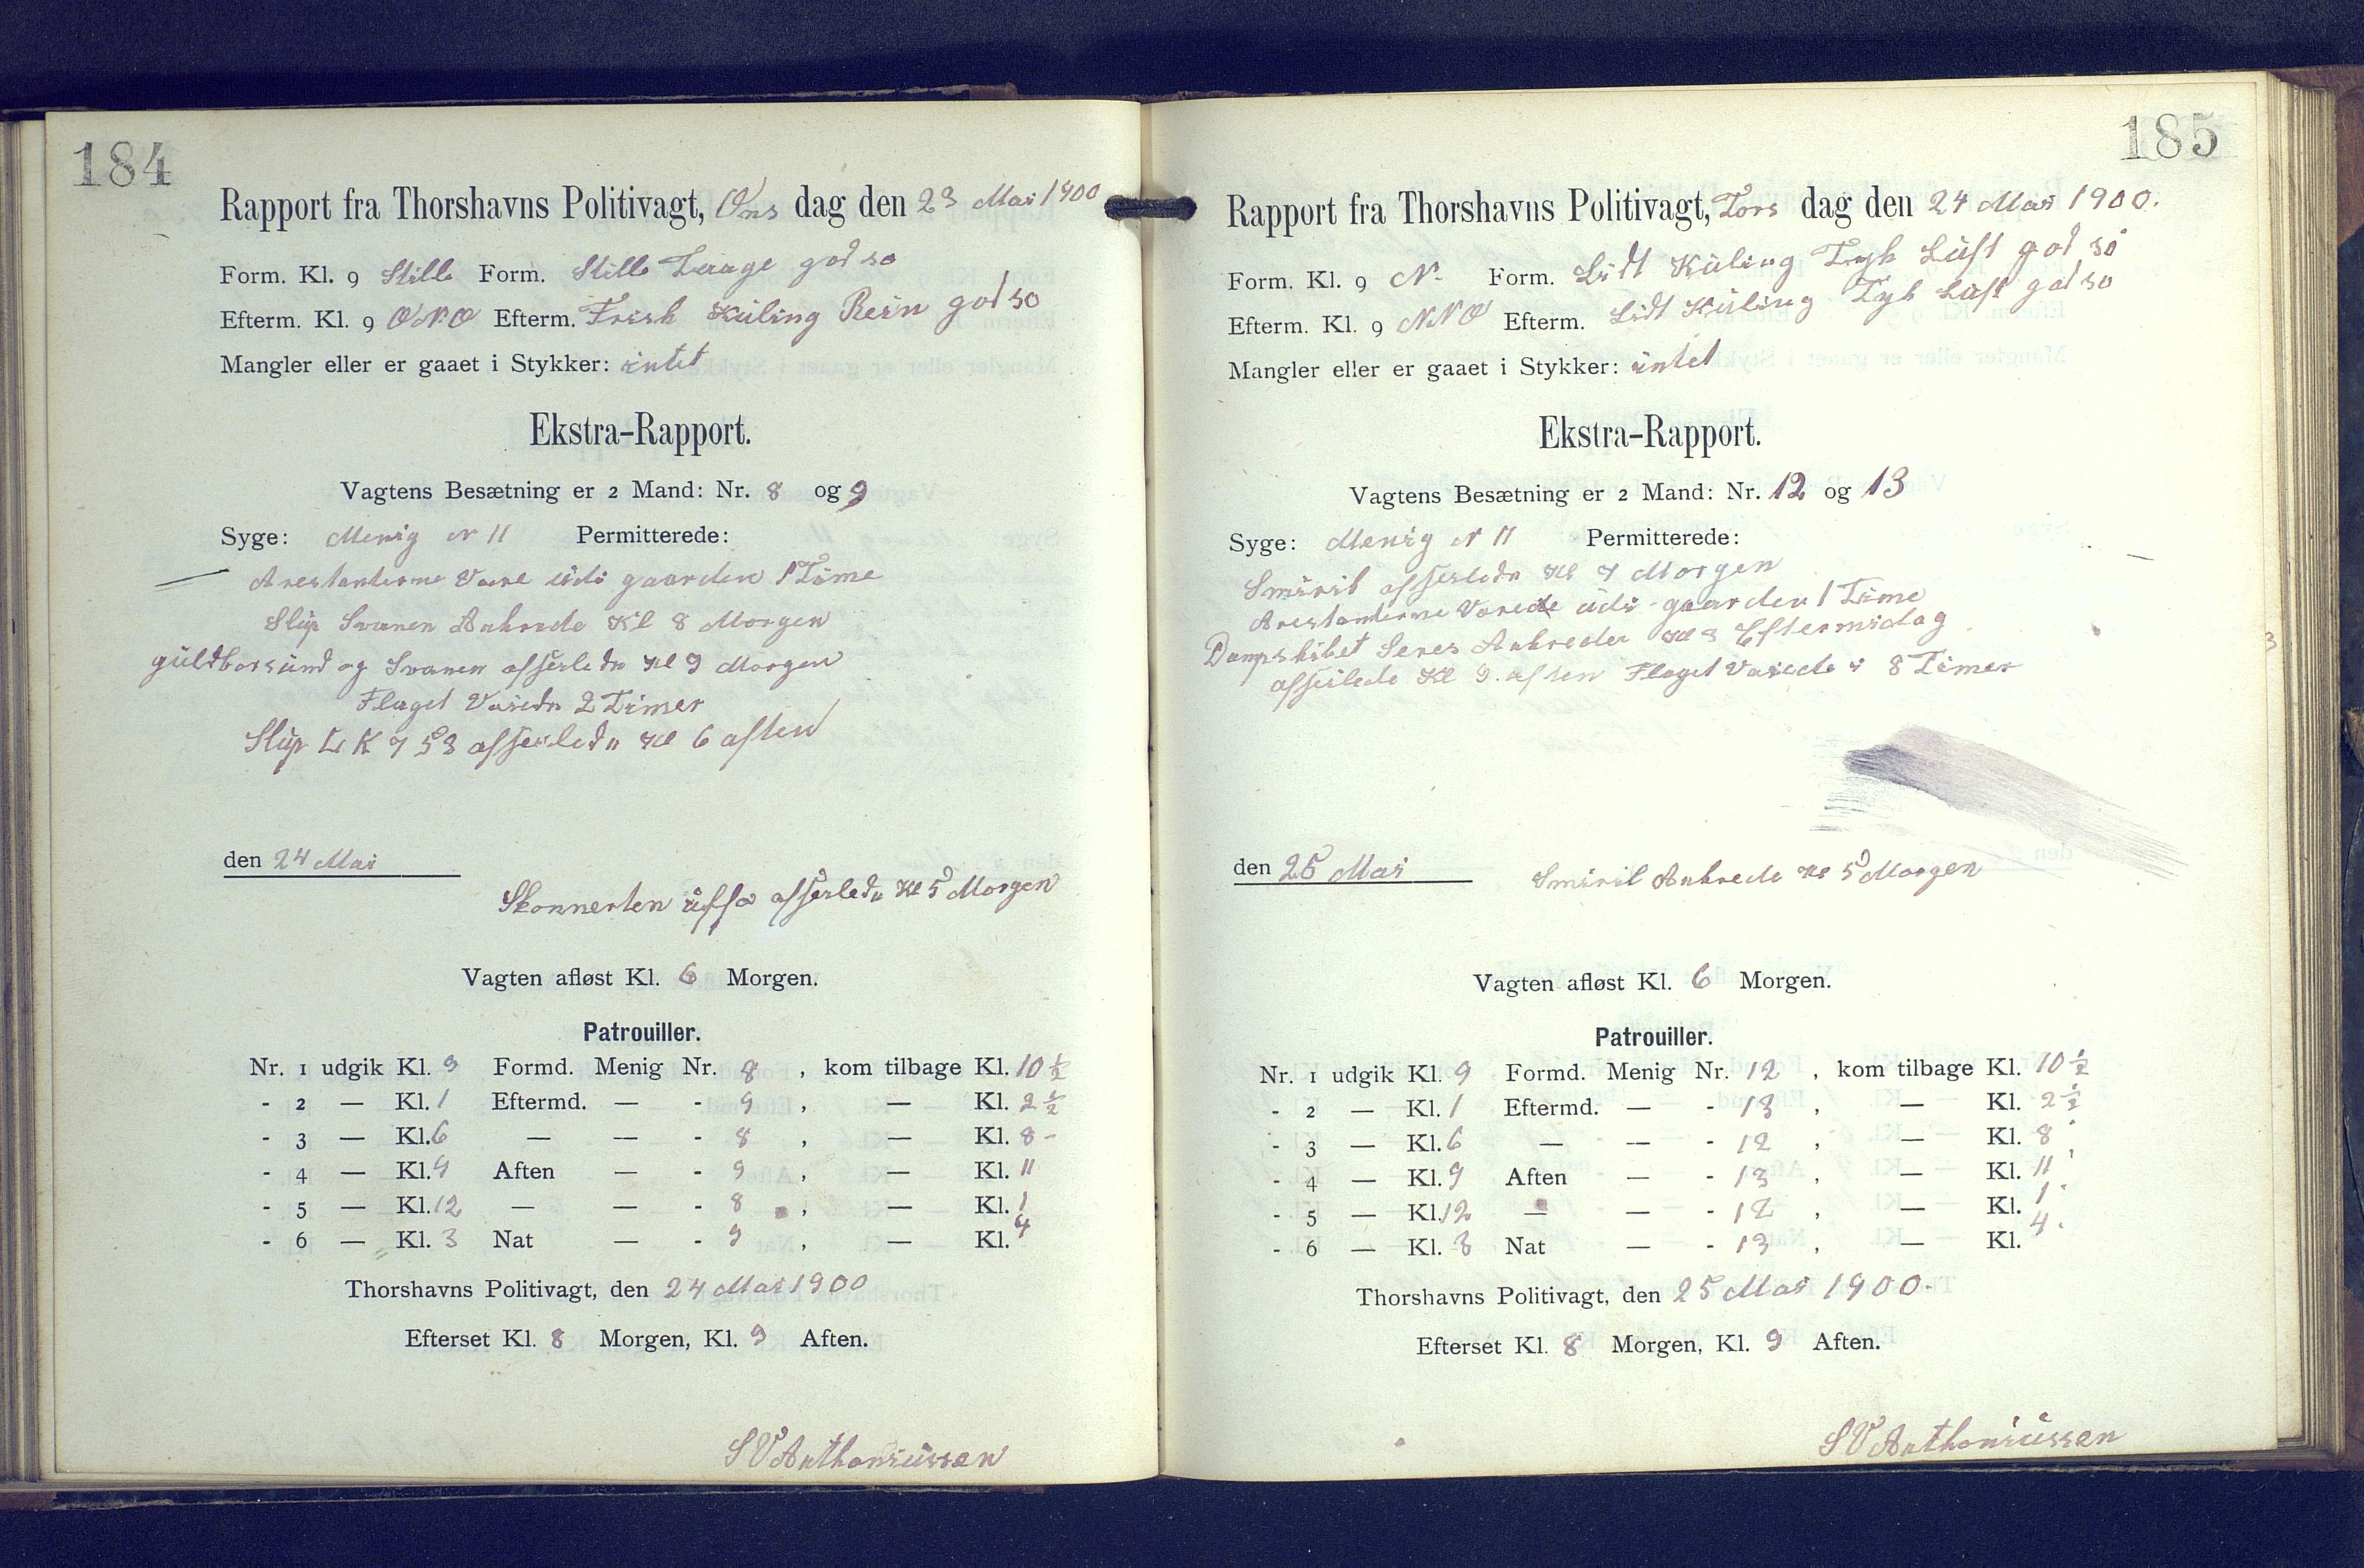 184
Rapport fra Thorshavns Politivagt, Ons dag den 23 Mai 1900
Form. Kl. 9 Stille Form. Stille Taage god so
Efterm. Kl. 9 ONO Efterm. Frisk Kuling Rein god so
Mangler eller er gaaet i Stykker: intet
Ekstra-Rapport.
Vagtens Besætning er 2 Mand: Nr. 8 og 9
Syge: Menig N 11 Permitterede:
Arestanterne Vare udi gaarden 1 Time
Slup Svanen Ankrede Kl 8 Morgen
guldborsund og Svanen afseilede Kl 9 Morgen
Flaget Vaiede 2 Timer
Slup K 753 afseilede Kl 6 aften
den 24 Mai
Skonnerten afseilede Kl 5 Morgen
Vagten afløst Kl. 6 Morgen.
Patrouiller.
Nr. 1 udgik Kl. 9 Formd. Menig Nr. 8 , kom tilbage Kl. 10 1/2
- 2 — Kl. 1 Eftermd. — - 9 , — Kl. 2 1/2
- 3 — Kl. 6 — — - 8 , — Kl. 8 -
- 4 — Kl. 9 Aften — - 9 , — Kl. 11
- 5 — Kl. 12 — — - 8 , — Kl. 1
- 6 — Kl. 3 Nat — - 9 , — Kl. 4
Thorshavns Politivagt, den 24 Mai 1900
Efterset Kl. 8 Morgen, Kl. 9 Aften.
S V Anthoniussen
185
Rapport fra Thorshavns Politivagt, Tors dag den 24 Mai 1900.
Form. Kl. 9 N. Form. Lidt Kuling Tyk Luft god so
Efterm. Kl. 9 NNO Efterm. Lidt Kuling Tyk Luft god so
Mangler eller er gaaet i Stykker: intet
Ekstra-Rapport.
Vagtens Besætning er 2 Mand: Nr. 12 og 13
Syge: Menig N 11 Permitterede:
Smiril afseilede Kl 7 Morgen
Arestanterne Vare udi gaarden 1 Time
Dampskibet Seres Ankrede Kl 3 Eftermidag
afseilede Kl 9. aften Flaget Vaiede i 8 Timer
den 25 Mai
Smiril Ankrede Kl 5 Morgen
Vagten afløst Kl. 6 Morgen.
Patrouiller.
Nr. 1 udgik Kl. 9 Formd. Menig Nr. 12 , kom tilbage Kl. 10 1/2
- 2 — Kl. 1 Eftermd. — - 13 , — Kl. 2 1/2
- 3 — Kl. 6 — — - 12 , — Kl. 8
- 4 — Kl. 9 Aften — - 13 , — Kl. 11
- 5 — Kl. 12 — — - 12 , — Kl. 1
- 6 — Kl. 3 Nat — - 13 , — Kl. 4.
Thorshavns Politivagt, den 25 Mai 1900.
Efterset Kl. 8 Morgen, Kl. 9 Aften.
S V Anthoniussen